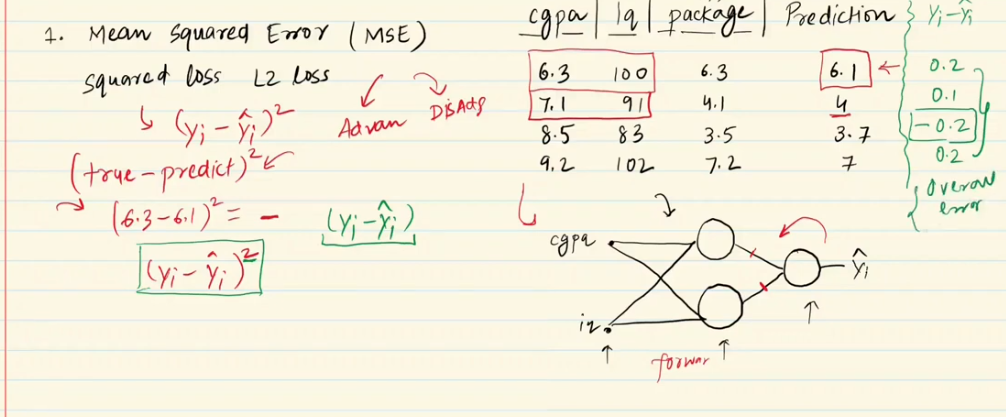 1. Mean Squared Error (MSE)
squared loss L2 loss
Advan DisAdg
(yi - ŷi)²
(true - predict)²
(6.3 - 6.1)² = -
(yi - ŷi)
(yi - ŷi)²
cgpa | iq | package | Prediction yi - ŷi
6.3 100 6.3 6.1 0.2
7.1 91 4.1 4 0.1
8.5 83 3.5 3.7 -0.2
9.2 102 7.2 7 0.2
Overall
error
cgpa
ŷi
iq
forwar